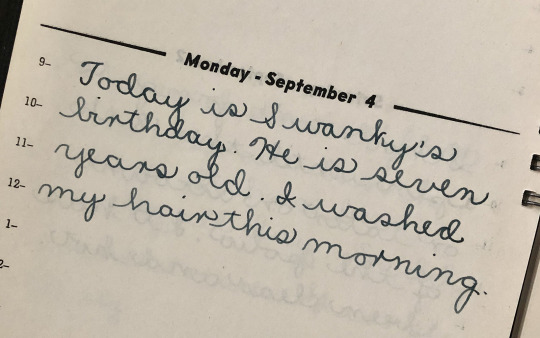 Monday - September 4
9-
Today is Swanky's
10-
birthday. He is seven
11-
years old. I washed
12-
my hair this morning.
1-
2-